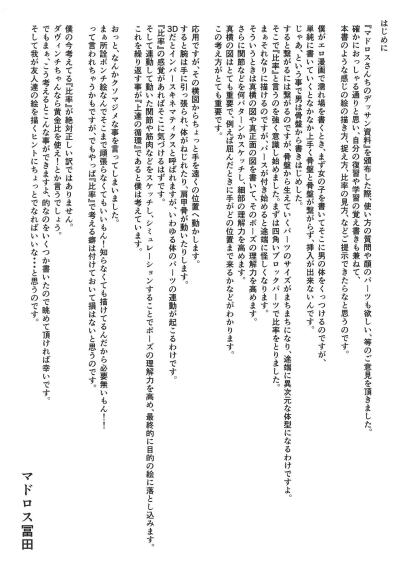 はじめに
『マドロスさんちのデッサン資料』を頒布した際、使い方の質問や顔のパーツも欲しい、等のご意見を頂きました。
確かにおっしゃる通りと思い、自分の復習や学習の覚え書きも兼ねて、
本書のような感じの絵の描き方、捉え方、比率の見方、などご提示できたらなと思うのです。
僕がエロ漫画で濡れ場を書くとき、まず女の子を書いてそこに男の体をくっつけるのですが、
単純に書いていくとなかなか上手く骨盤と骨盤が繋がらず、挿入が出来ないんです。
じゃあ、という事で男は骨盤から書きはじめました。
すると繋がるには繋がるのですが、骨盤から生えていくパーツのサイズがまちまちになり、途端に異次元な体型になるわけですよ。
そこで『比率』と言うのを強く意識し始めました。まずは四角いブロックパーツで比率をとりました。
まぁそれなりに描けるのですが、パースが付き始めると途端に怪しくなります。
そういうときは真横の図や真正面の図を書いて、そのポーズの理解力を高めます。
さらに関節などを何パターンかスケッチし、細部の理解力を高めます。
真横の図はとても重要で、例えば屈んだときに手がどの位置まで来るかなどがわかります。
この考え方がとても重要です。
応用ですが、その横図からちょっと手を遠くの位置へ動かします。
すると腕は手に引っ張られ、体がねじれたり、肩甲骨が動いたりします。
3Dだとインバースキネマティクスと呼ばれますが、いわゆる体のパーツの連動が起こるわけです。
『比率』の感覚があればそこに気づけるはずです。
そして連動して動いた関節や筋肉などをスケッチし、シミュレーションすることでポーズの理解力を高め、最終的に目的の絵に落とし込みます。
これを繰り返す事が『上達の循環』であると僕は考えています。
おっと、なんかクソマジメな事を言ってしまいました。
まぁ所詮ポンチ絵なんでそこまで頑張らなくてもいいもん!知らなくても描けてるんだから必要無いもん!!
って言われちゃうかもですが、でもやっぱ『比率』で考える癖は付けておいて損はないと思うのです。
僕の今考えてる『比率』が絶対正しい訳ではありません。
ダヴィンチちゃんなら黄金比を使え!とか言うでしょう。
でもまぁ、こう考えるとこんな事ができますよ、的なのをいくつか書いたので眺めて頂ければ幸いです。
そして我が友人達の絵を描くヒントにちょっとでもなればいいな!と思うのです。
マドロス冨田